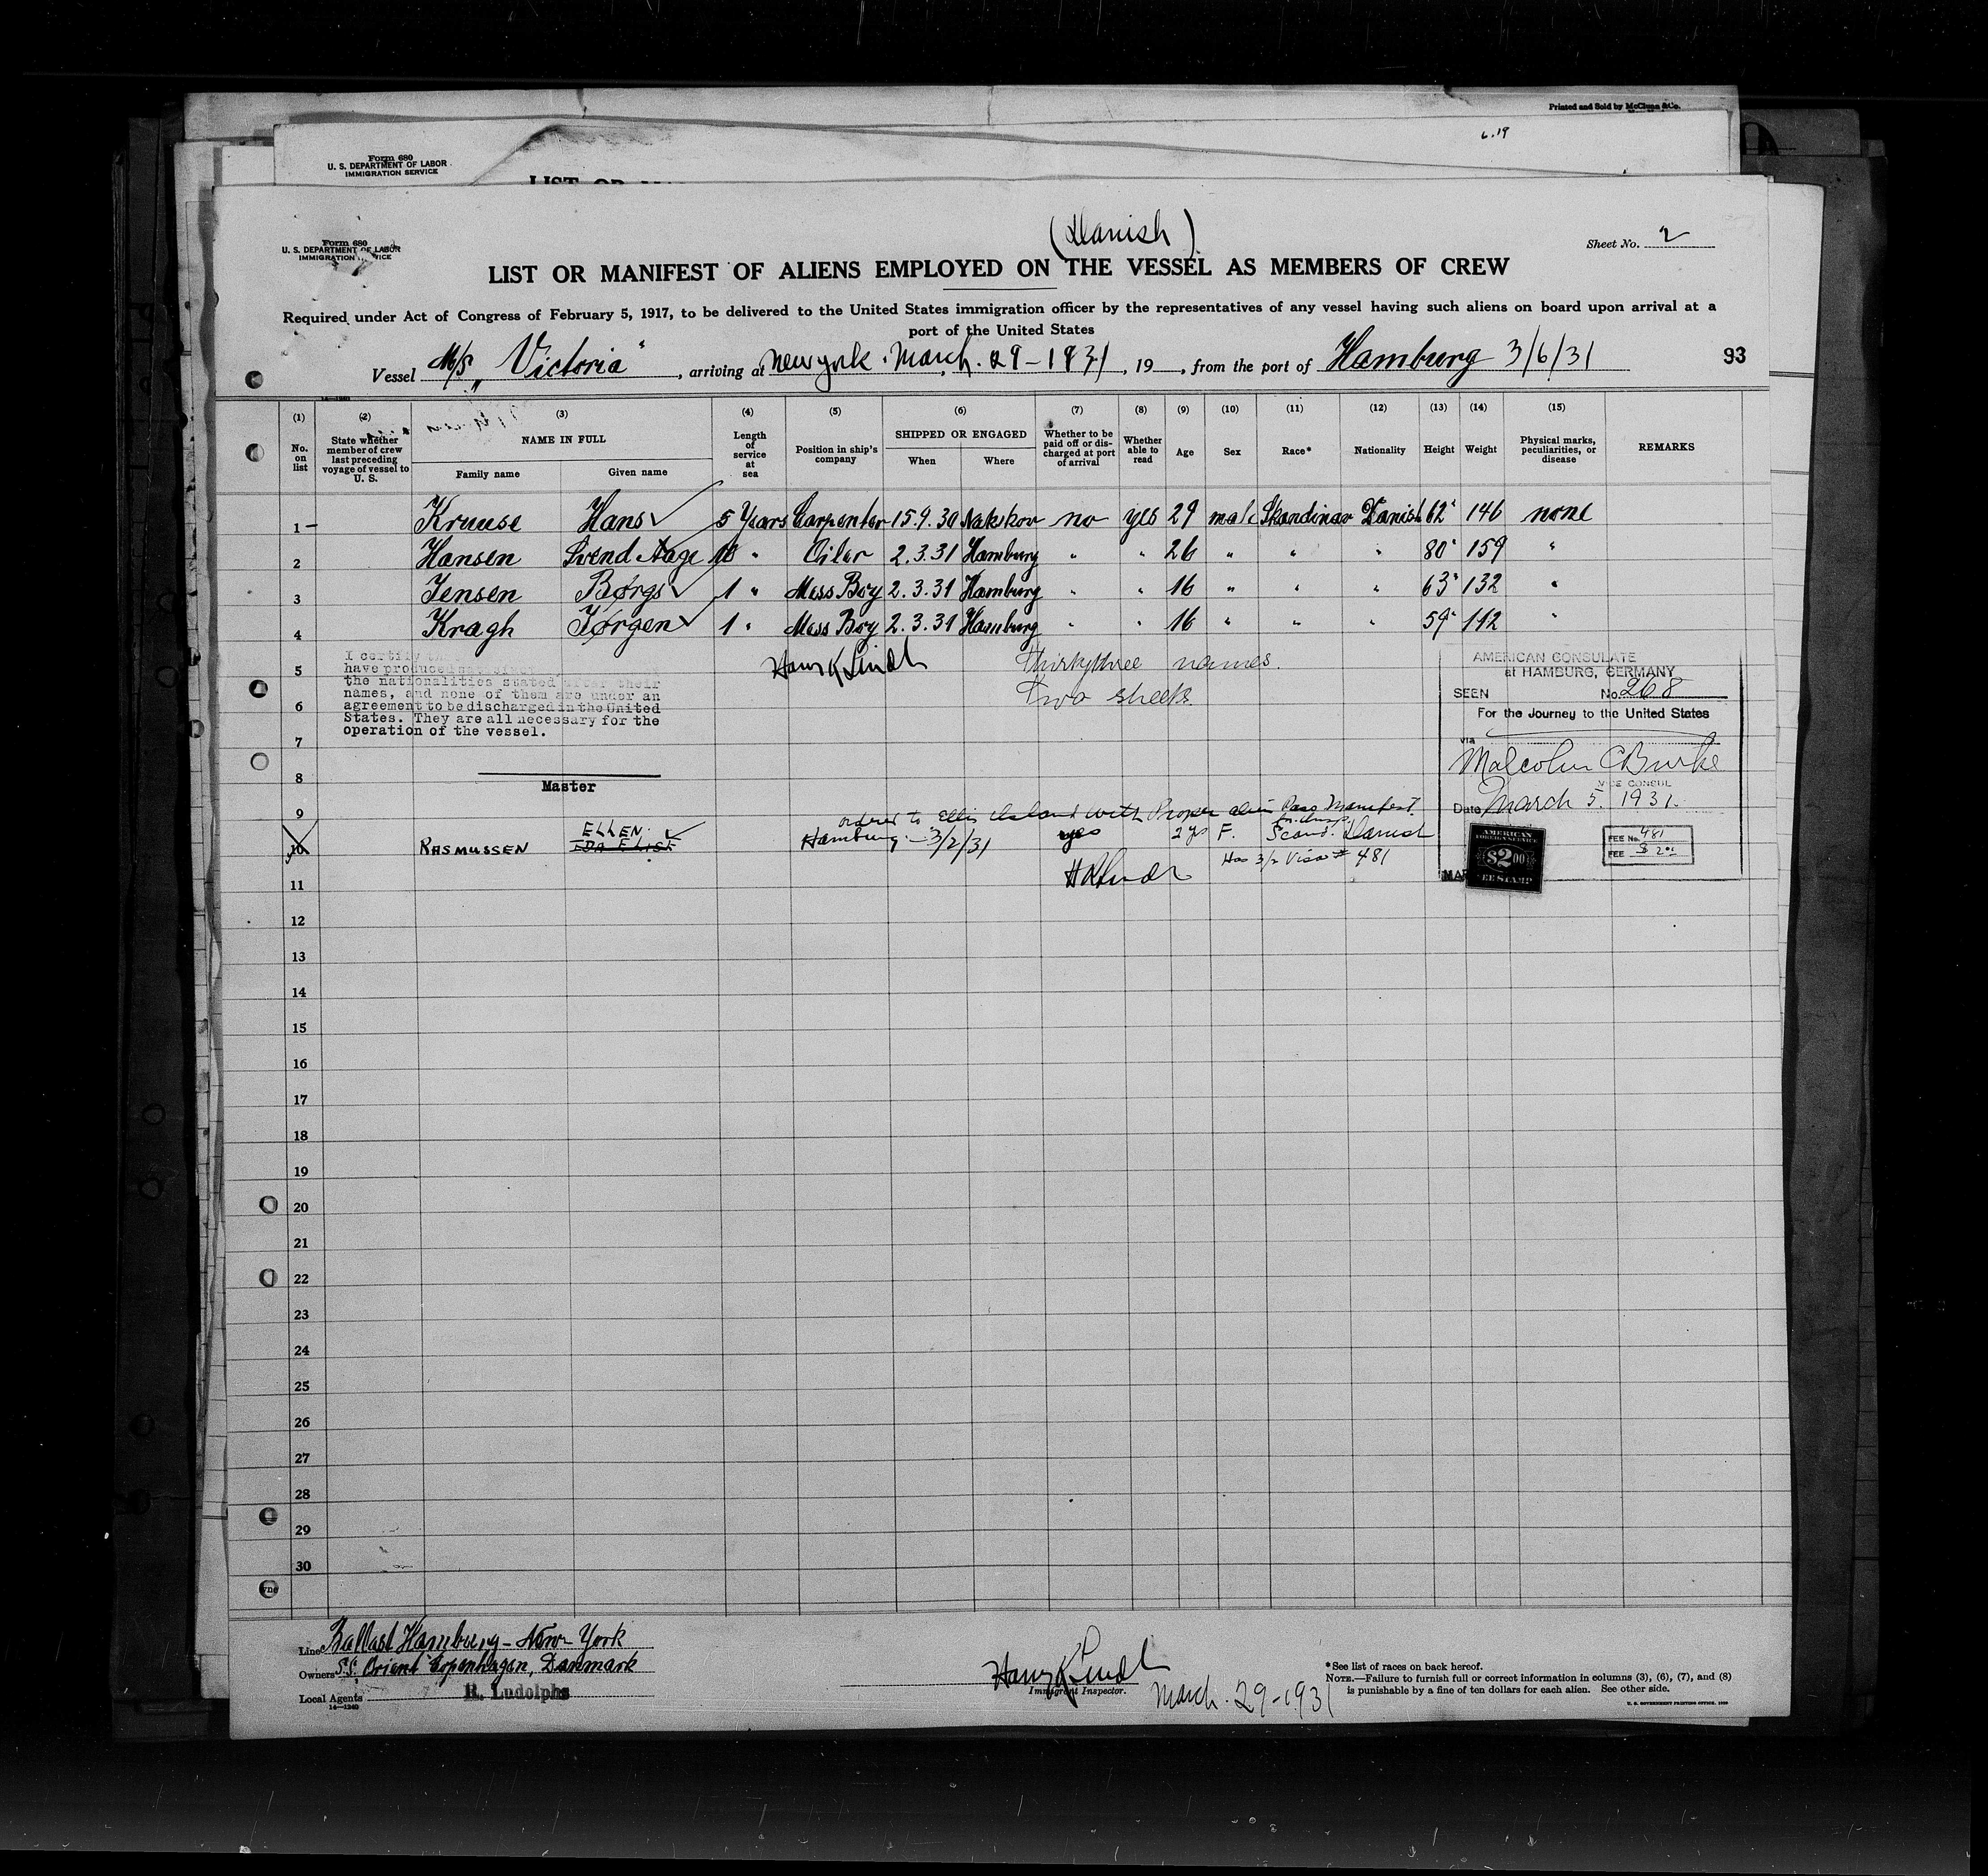 Printed and Sold by McClung & Co.
6.19
Form 680
U. S. DEPARTMENT OF LABOR
IMMIGRATION SERVICE
Form 680
U. S. DEPARTMENT OF LABOR
IMMIGRATION SERVICE
(Danish)
Sheet No. 2
LIST OR MANIFEST OF ALIENS EMPLOYED ON THE VESSEL AS MEMBERS OF CREW
Required under Act of Congress of February 5, 1917, to be delivered to the United States immigration officer by the representatives of any vessel having such aliens on board upon arrival at a
port of the United States
Vessel M/S "Victoria", arriving at New York. March. 29-1931, 19 , from the port of Hamburg 3/6/31
93
14-1240
(1) (2) (3) (4) (5) (6) (7) (8) (9) (10) (11) (12) (13) (14) (15)
No. on list
State whether member of crew last preceding voyage of vessel to U. S.
NAME IN FULL
Family name Given name
Length of service at sea
Position in ship's company
SHIPPED OR ENGAGED
When Where
Whether to be paid off or discharged at port of arrival
Whether able to read
Age
Sex
Race*
Nationality
Height
Weight
Physical marks, peculiarities, or disease
REMARKS
1 - Kruuse Hans 5 Years Carpenter 15.9.30 Nakskov no yes 29 male Skandinav Danish 62" 146 none
2 Hansen Svend Aage 10 " Oiler 2.3.31 Hamburg " " 26 " " " 80" 159 "
3 Jensen Børge 1 " Mess Boy 2.3.31 Hamburg " " 16 " " " 63" 132 "
4 Kragh Jørgen 1 " Mess Boy 2.3.31 Hamburg " " 16 " " " 59" 112 "
I certify
have produced
the nationalities stated after their
names, and none of them are under an
agreement to be discharged in the United
States. They are all necessary for the
operation of the vessel.
Master
5
6
7
8
9
Thirtythree names.
Two sheets.
AMERICAN CONSULATE
at HAMBURG, GERMANY
SEEN No. 268
For the Journey to the United States
via
Malcolm C Burke
VICE CONSUL
Date March 5. 1931.
AMERICAN
FOREIGN SERVICE
$2.00
FEE STAMP
MAR
FEE No. 481
FEE $ 2.00
ordered to Ellis Island with Proper alien Pass Manifest.
10 RASMUSSEN ELLEN EDA ELISE Hamburg - 3/2/31 yes 2 yrs F. Scand. Danish
Has 3/2 Visa # 481
11
12
13
14
15
16
17
18
19
20
21
22
23
24
25
26
27
28
29
30
Line Ballast Hamburg - New York
Owners S.S. Orient Copenhagen, Danmark
Local Agents R. Ludolphs
14-1240
Immigrant Inspector.
March. 29-1931
* See list of races on back hereof.
NOTE.—Failure to furnish full or correct information in columns (3), (6), (7), and (8)
is punishable by a fine of ten dollars for each alien. See other side.
U. S. GOVERNMENT PRINTING OFFICE: 1930